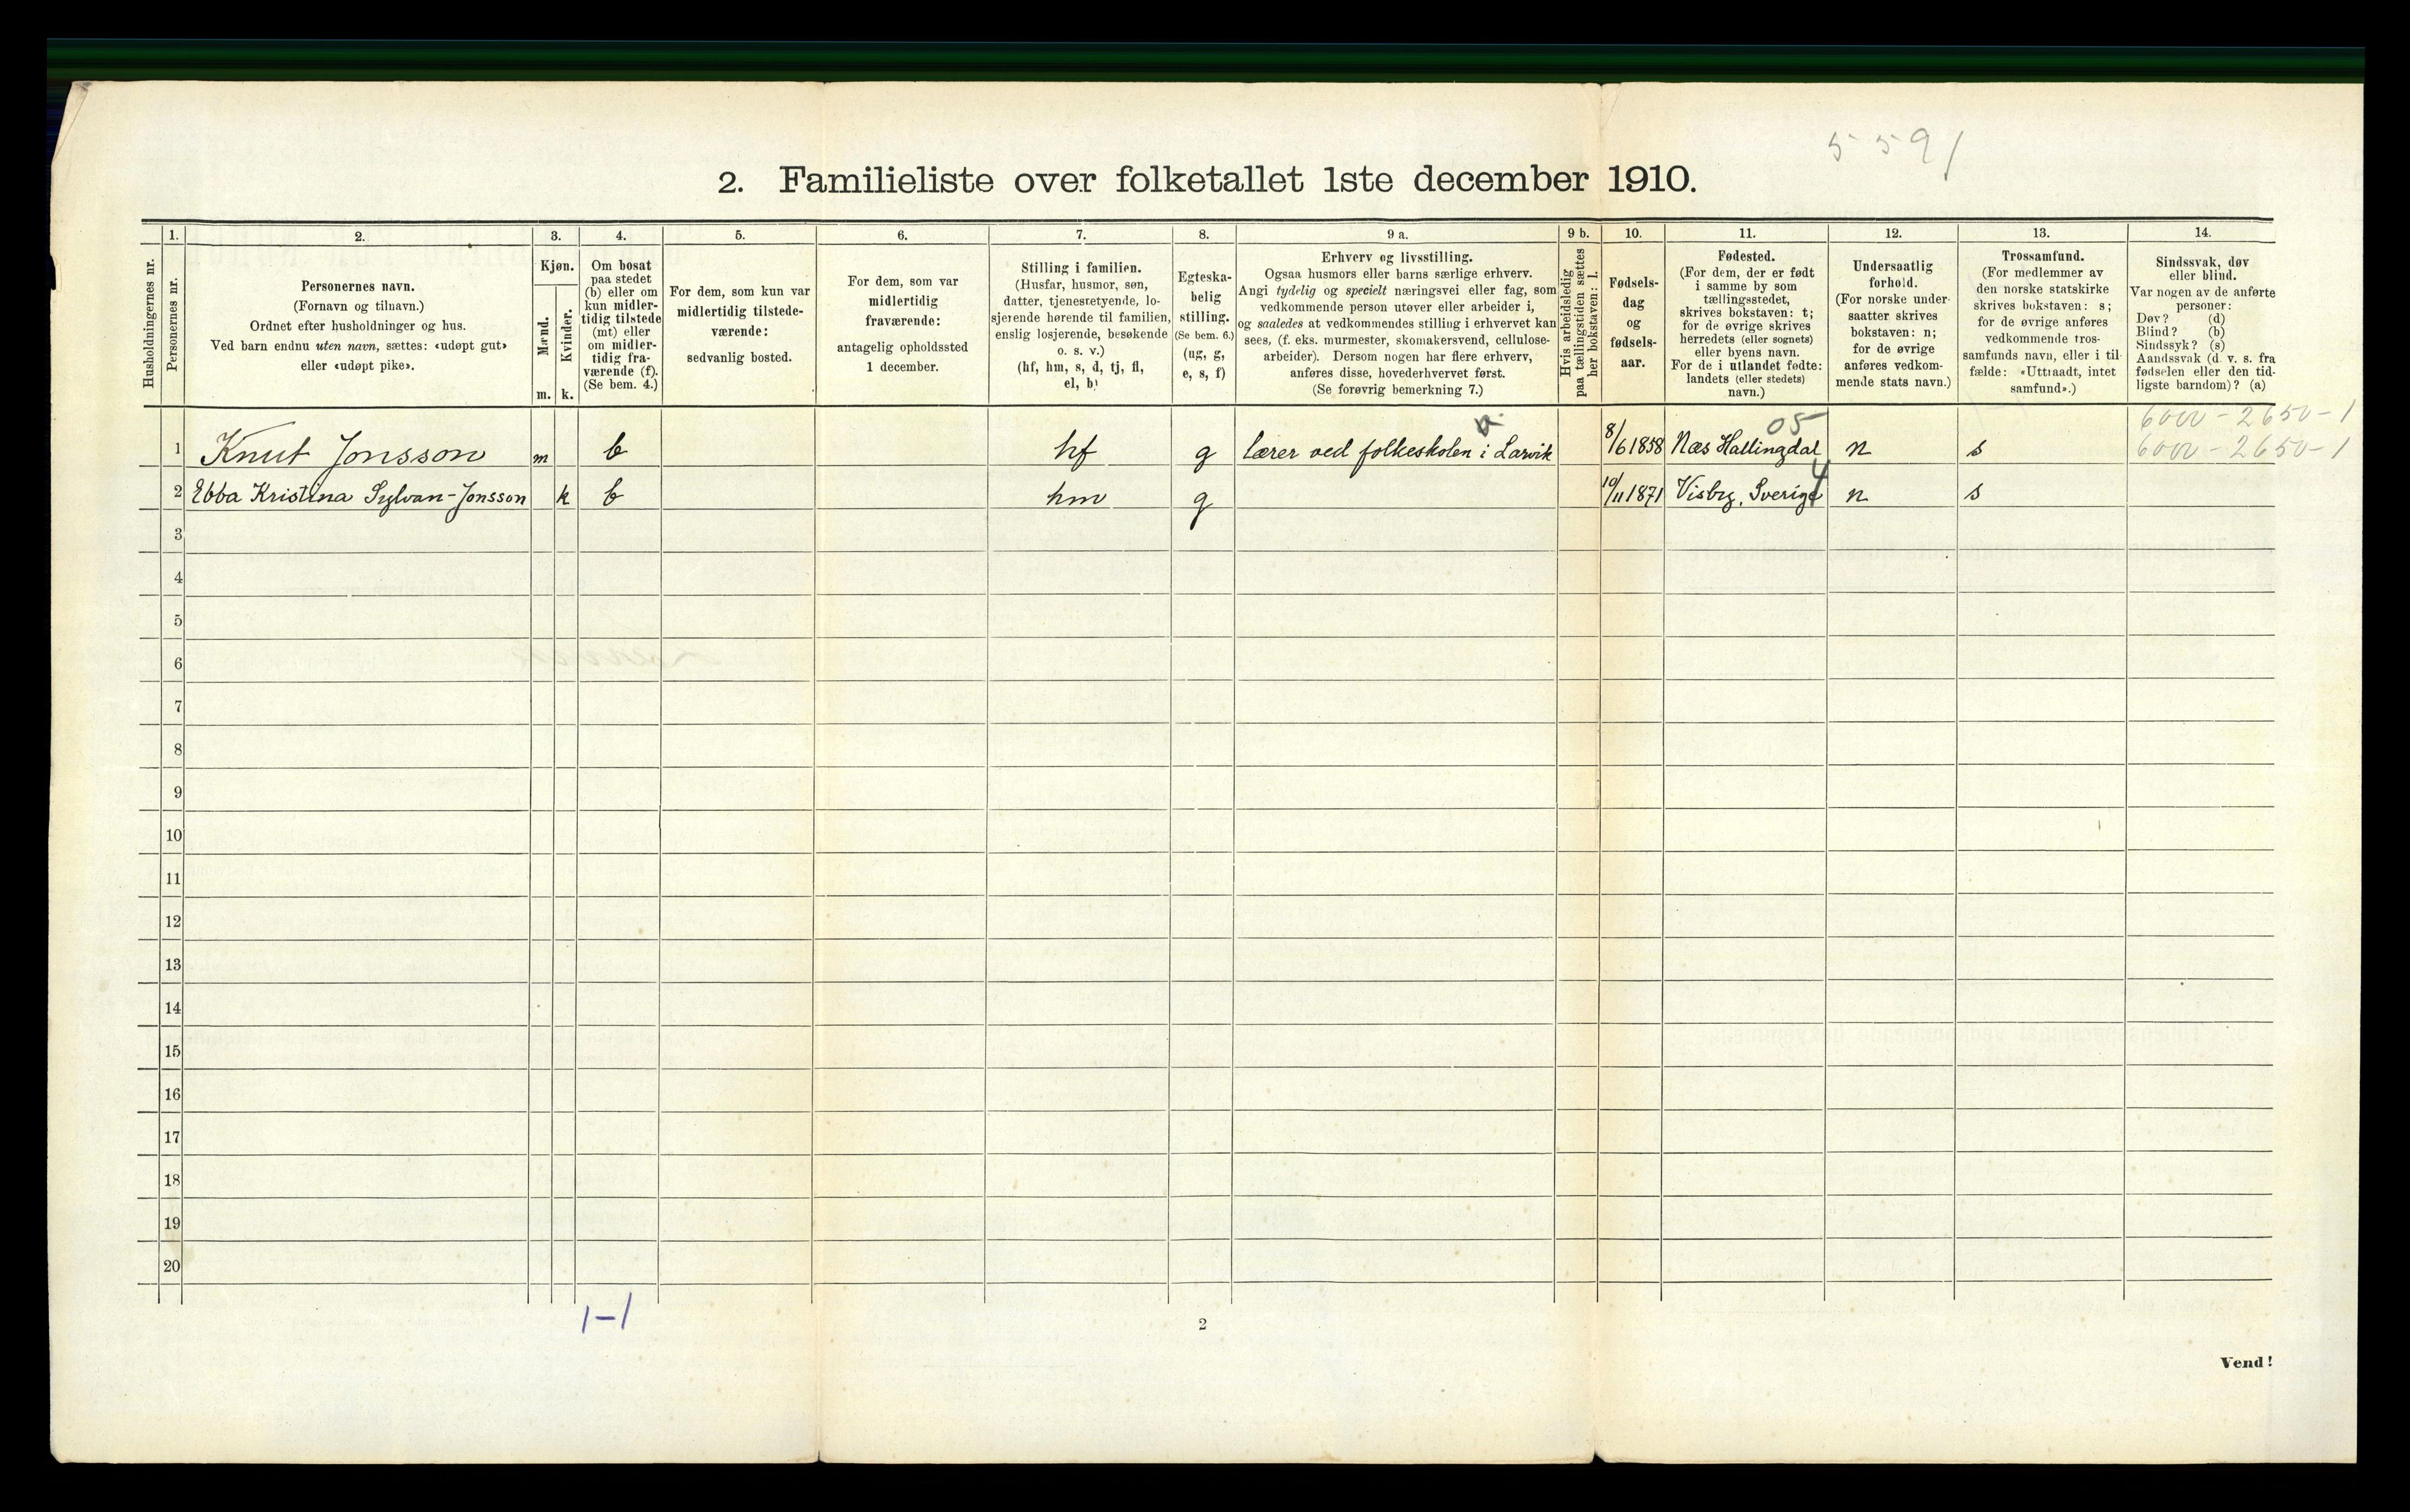 5591
2. Familieliste over folketallet 1ste december 1910.
Husholdningernes nr.
1.
Personernes nr.
2.
Personernes navn.
(Fornavn og tilnavn.)
Ordnet efter husholdninger og hus.
Ved barn endnu uten navn, sættes: «udøpt gut»
eller «udøpt pike».
3.
Kjøn.
Mænd.
Kvinder.
m. k.
4.
Om bosat
paa stedet
(b) eller om
kun midler-
tidig tilstede
(mt) eller
om midler-
tidig fra-
værende (f).
(Se bem. 4.)
5.
For dem, som kun var
midlertidig tilstede-
værende:
sedvanlig bosted.
6.
For dem, som var
midlertidig
fraværende:
antagelig opholdssted
1 december.
7.
Stilling i familien.
(Husfar, husmor, søn,
datter, tjenestetyende, lo-
sjerende hørende til familien,
enslig losjerende, besøkende
o. s. v.)
(hf, hm, s, d, tj, fl,
el, b)
8.
Egteska-
belig
stilling.
(Se bem. 6.)
(ug, g,
e, s, f)
9 a.
Erhverv og livsstilling.
Ogsaa husmors eller barns særlige erhverv.
Angi tydelig og specielt næringsvei eller fag, som
vedkommende person utøver eller arbeider i,
og saaledes at vedkommendes stilling i erhvervet kan
sees, (f. eks. murmester, skomakersvend, cellulose-
arbeider). Dersom nogen har flere erhverv,
anføres disse, hovederhvervet først.
(Se forøvrig bemerkning 7.)
9 b.
Hvis arbeidsledig
paa tællingstiden sættes
her bokstaven: l.
10.
Fødsels-
dag
og
fødsels-
aar.
11.
Fødested.
(For dem, der er født
i samme by som
tællingsstedet,
skrives bokstaven: t;
for de øvrige skrives
herredets (eller sognets)
eller byens navn.
For de i utlandet fødte:
landets (eller stedets)
navn.)
12.
Undersaatlig
forhold.
(For norske under-
saatter skrives
bokstaven: n;
for de øvrige
anføres vedkom-
mende stats navn.)
13.
Trossamfund.
(For medlemmer av
den norske statskirke
skrives bokstaven: s;
for de øvrige anføres
vedkommende tros-
samfunds navn, eller i til-
fælde: «Uttraadt, intet
samfund».)
14.
Sindssvak, døv
eller blind.
Var nogen av de anførte
personer:
Døv? (d)
Blind? (b)
Sindssyk? (s)
Aandssvak (d. v. s. fra
fødselen eller den tid-
ligste barndom)? (a)
05 6000-2650-1
1 Knut Jonsson m b hf g lærer ved folkeskolen i Larvik 8/6 1858 Næs Hallingdal n s 6000-2650-1
4
2 Ebba Kristina Sylvan-Jonsson k b hm g 10/11 1871 Visby, Sverige n s
3
4
5
6
7
8
9
10
11
12
13
14
15
16
17
18
19
20
1-1
2
Vend!